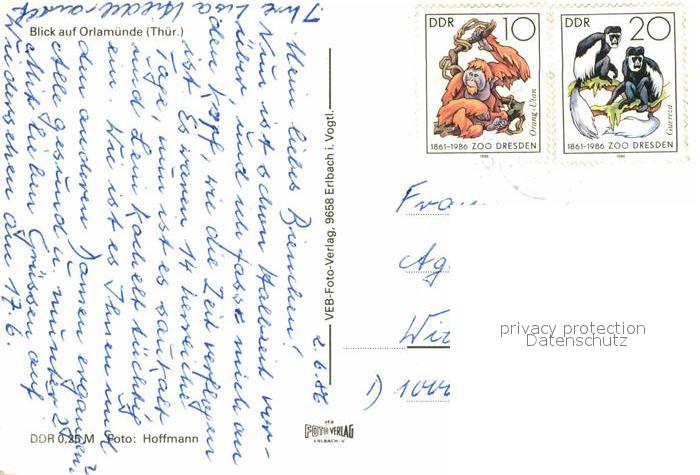 Blick auf Orlamünde (Thür.)
2.6.86
Mein liebes Bienchen!
Nun ist schon Halbzeit vor-
über und ich fasse mich an
den Kopf, wie die Zeit verflogen
ist. Es waren 14 herrliche
Tage, nun ist es saukalt
und dem Kachelt tüchtig
ein. Wie ist es Ihnen und
den anderen Damen ergangen?
Alle gesund u. munter?
Mit lieben Grüssen auf
Wiedersehen am 17.6.
Ihre Lisa
DDR 0,25 M Foto: Hoffmann
VEB-Foto-Verlag, 9658 Erlbach i. Vogtl.
FOTO VERLAG
ERLBACH-V
DDR 10
Orang-Utan
1861-1986 ZOO DRESDEN
1986
DDR 20
Guereza
1861-1986 ZOO DRESDEN
1986
Frau
Ag
Wit
privacy protection
Datenschutz